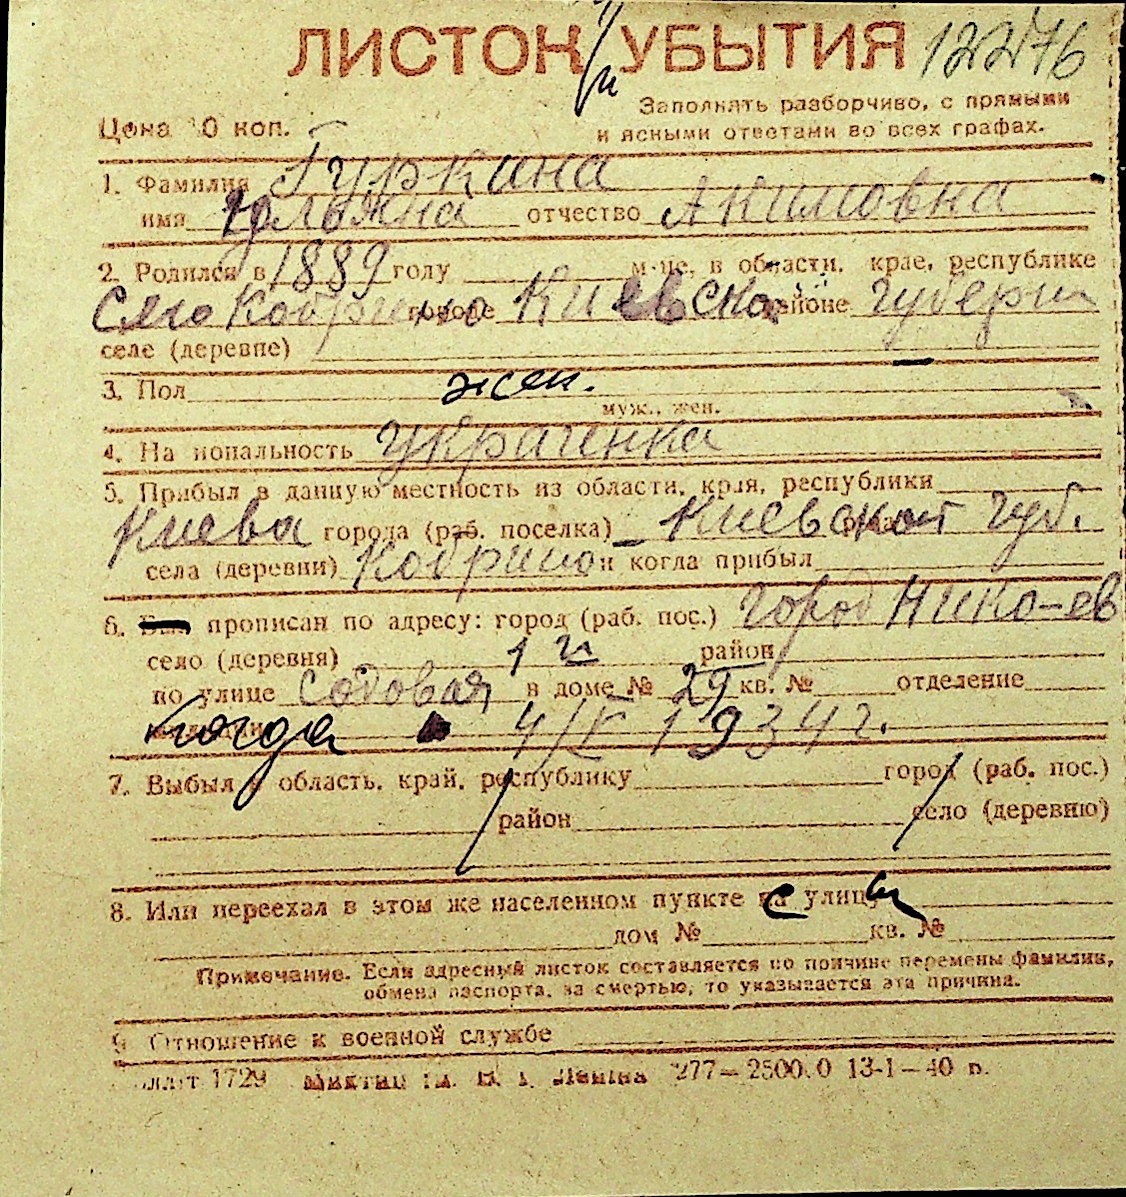 ЛИСТОК УБЫТИЯ 12276
Заполнять разборчиво, с прямыми
и ясными ответами во всех графах.
Цена 0 коп.
1. Фамилия Гуркина
имя отчество Акимовна
2. Родился в 1889 году м-це, в области, крае, республике
Село Кобрино городе Киевской районе губерни
селе (деревне)
3. Пол жен.
муж., жен.
4. На иональность Украиенка
5. Прибыл в данную местность из области, края, республики
Киева города (раб. поселка) Киевской губ.
села (деревни) Кобрино и когда прибыл
6. прописан по адресу: город (раб. пос.) город Нико-ев
село (деревня) район
по улице Садовая в доме № 29 кв. № отделение
когда 1934 г.
7. Выбыл в область, край, республику город (раб. пос.)
район село (деревню)
8. Или переехал в этом же населенном пункте с улицы
дом № кв. №
Примечание. Если адресный листок составляется по причине перемены фамилии,
обмена паспорта, за смертью, то указывается эта причина.
9. Отношение к военной службе
1729 Ленина 277—2500.0 13-1—40 г.